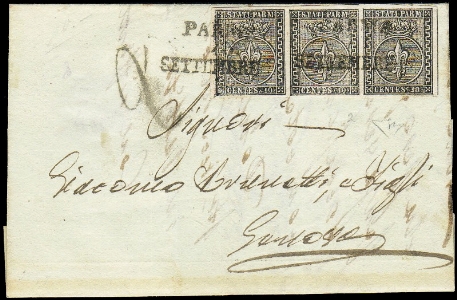 STATI PARM STATI PARM STATI PARM
PAR
SETTEMBRE SETTEMBRE
CENTES. 10 CENTES. 10 CENTES. 10
2
Signori
Giacomo Brunetti, e Figli
Genova